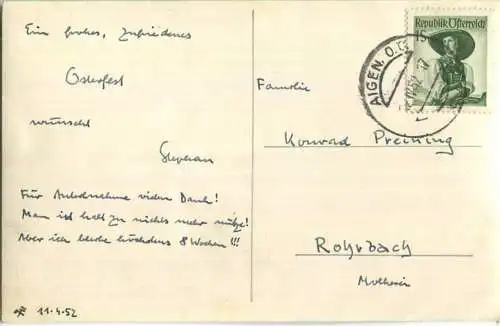 Ein frohes, zufriedenes
Osterfest
wünscht
Für Anteilnahme vielen Dank!
Man ist halt zu nichts mehr nütze!
Aber ich bleibe höchstens 8 Wochen!!!
11.4.52
Republik Österreich
15
AIGEN. O.Ö.
Familie
Konrad Preining
Rohrbach